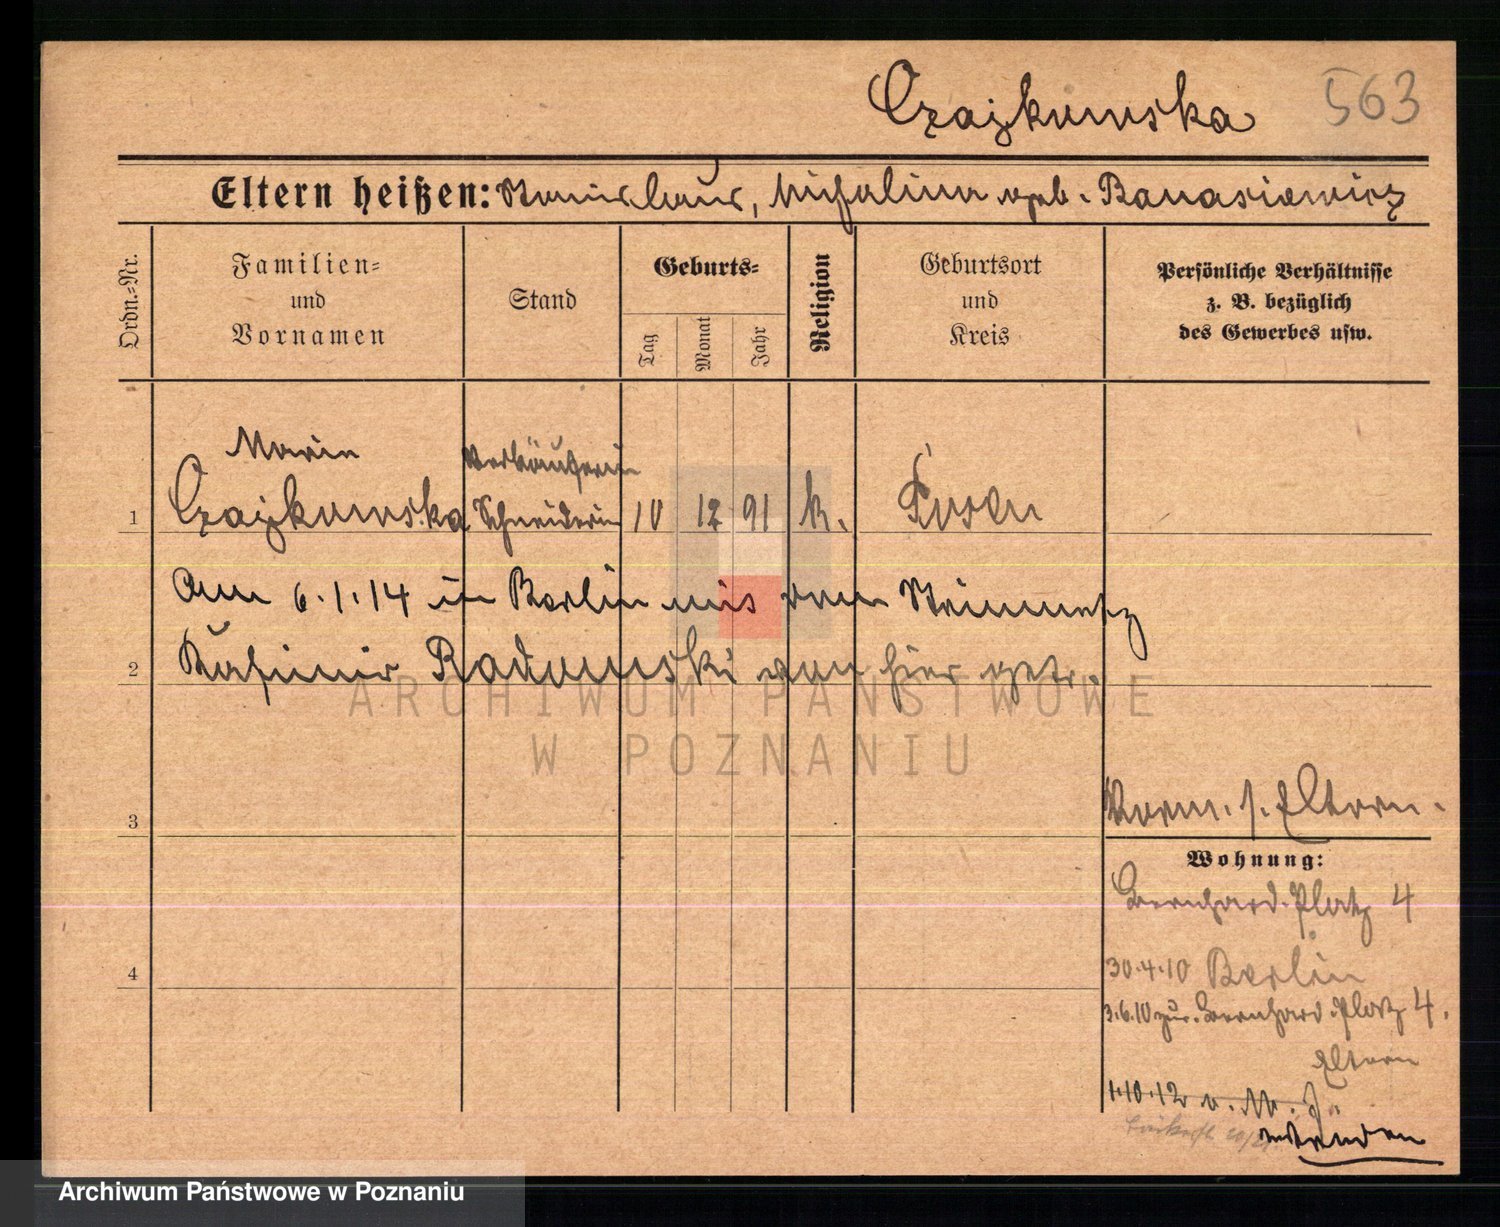 Czajkowska 563
Eltern heißen: Stanislaus, Michalina geb. Banasiewicz
Ordn.-Nr.
Familien-
und
Vornamen
Stand
Geburts-
Tag
Monat
Jahr
Religion
Geburtsort
und
Kreis
Persönliche Verhältnisse
z. B. bezüglich
des Gewerbes usw.
Marie Verkäuferin
1 Czajkowska Schneiderin 10 12 91 k. Posen
Am 6.1.14 in Berlin mit dem Steinmetz
2 Kasimir Radomski von hier getr.
ARCHIWUM PAŃSTWOWE
W POZNANIU
3
Vorm. s. Eltern.
Wohnung:
Bernhard.Platz 4
4
30.4.10 Berlin
3.6.10 zur. Bernhard.Platz 4.
Eltern
1.10.12 v. M.
wenden
Archiwum Państwowe w Poznaniu